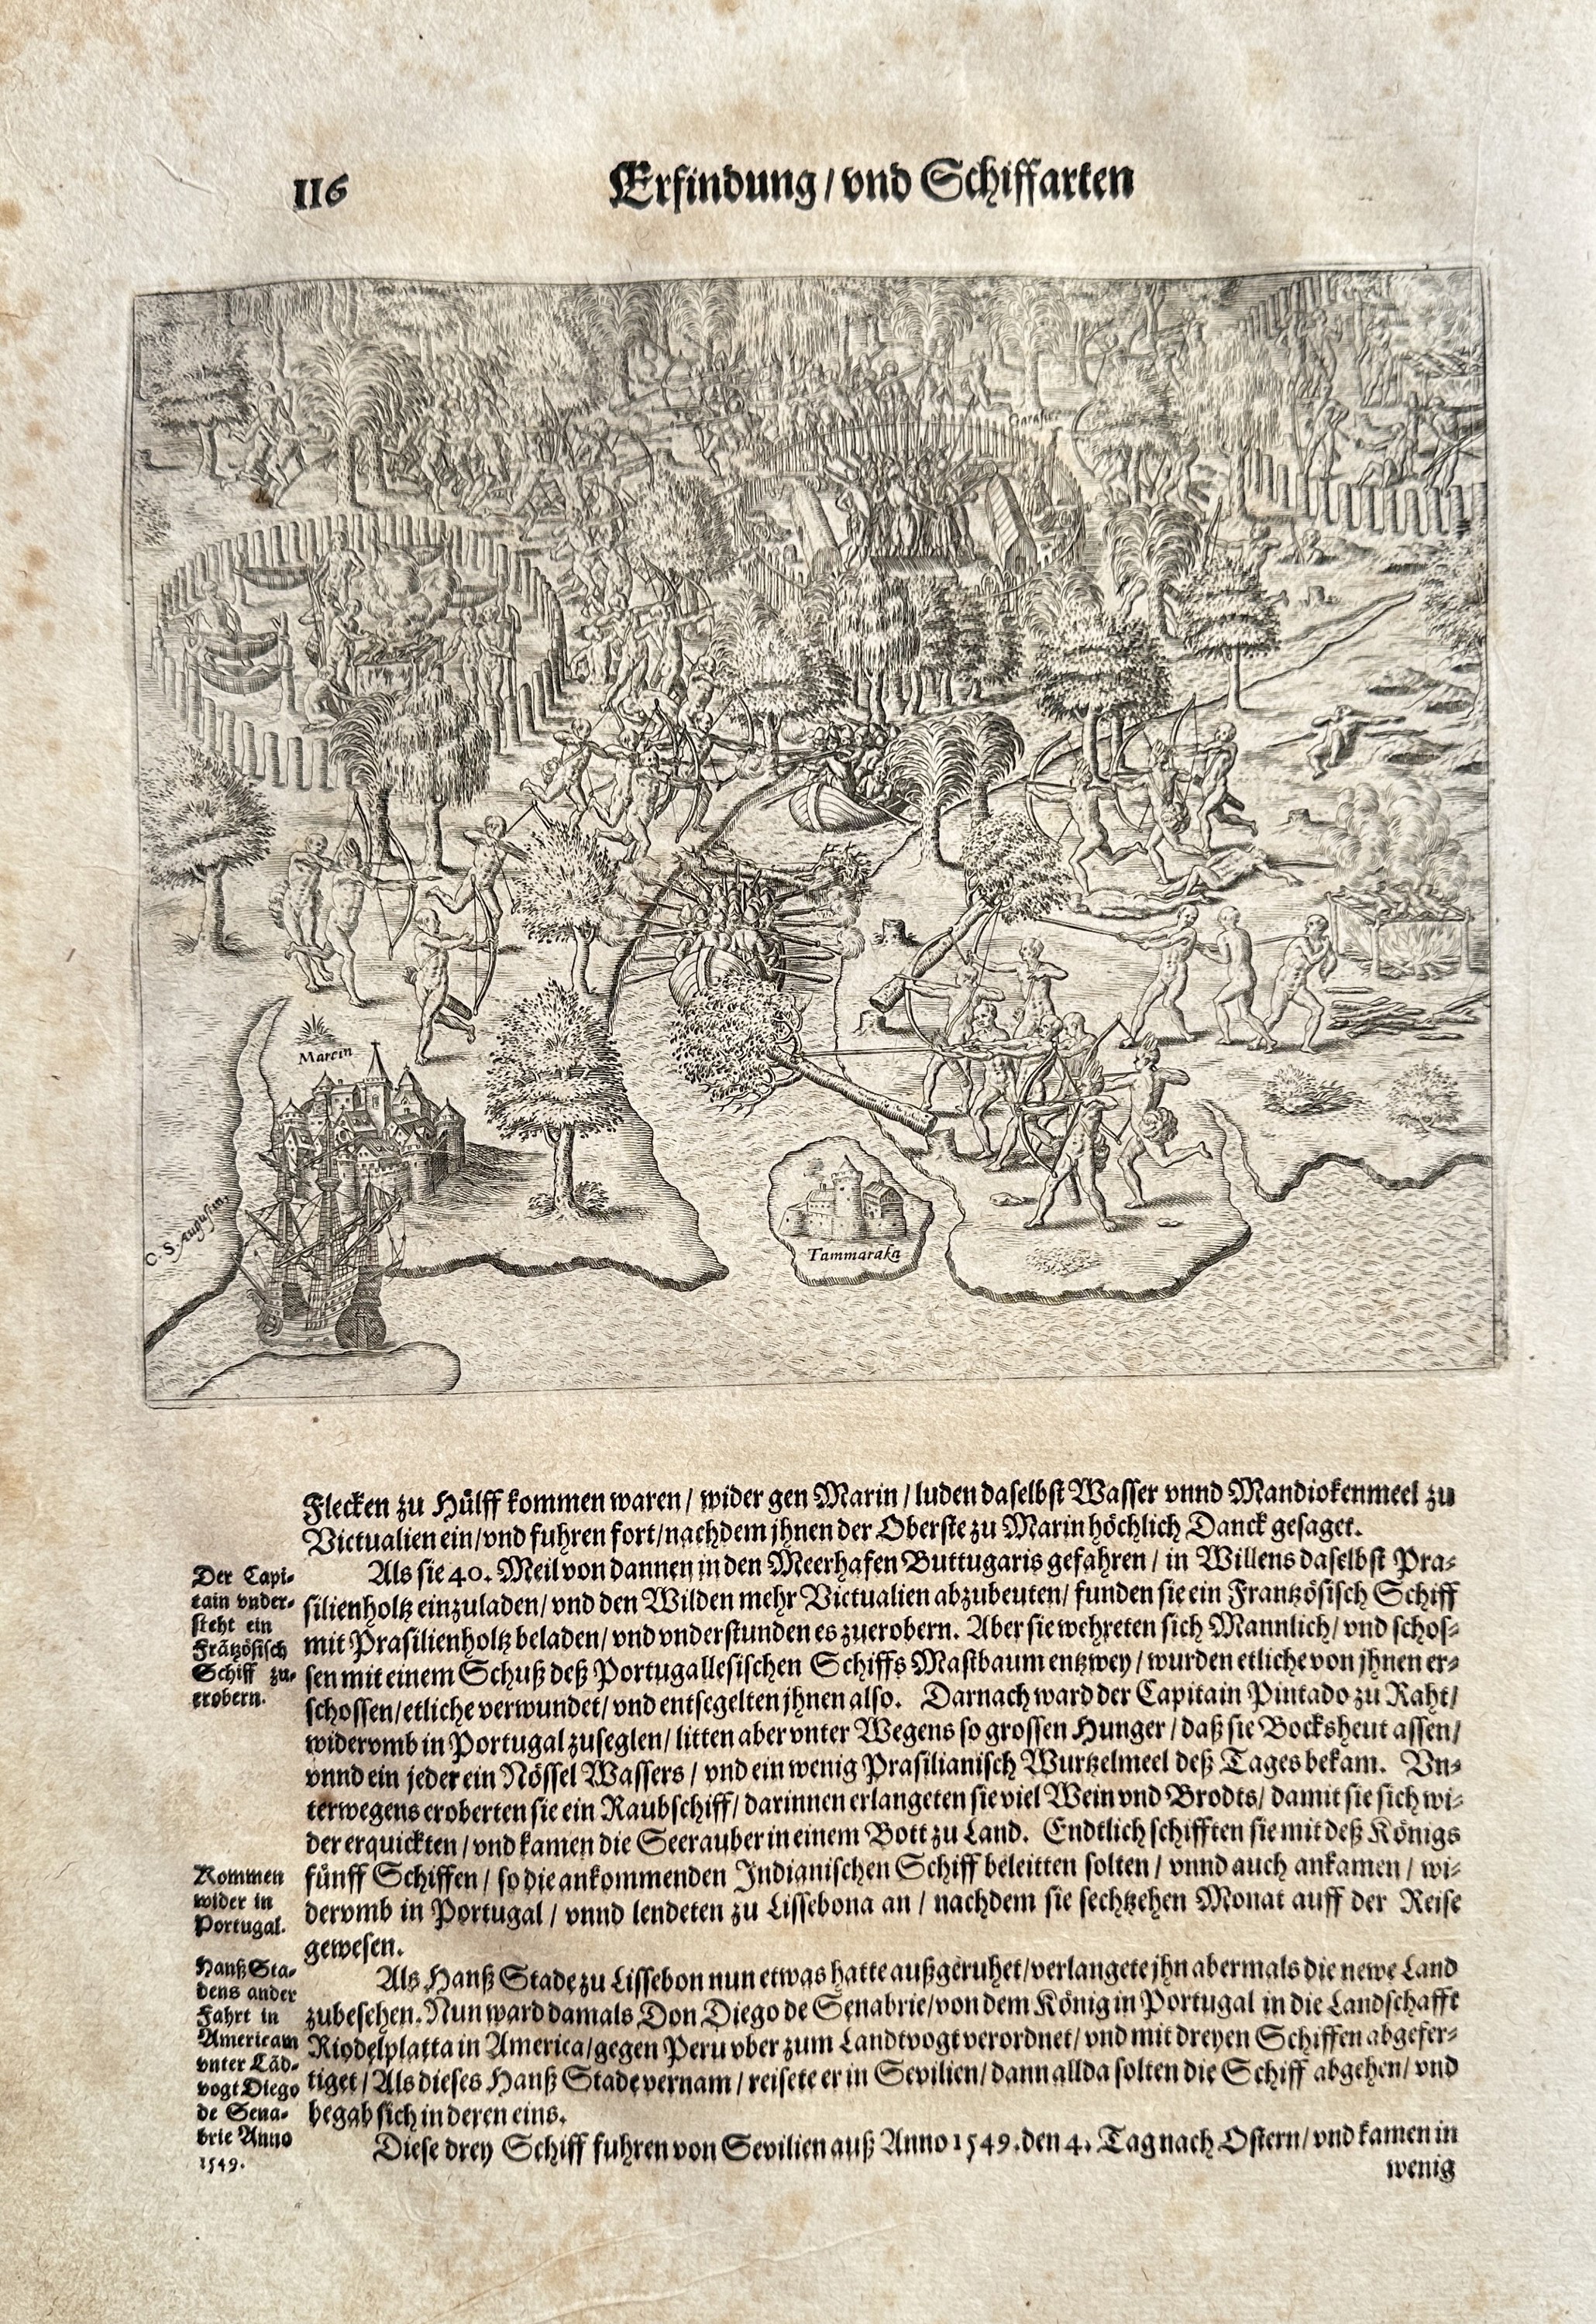 116
Erfindung / vnd Schiffarten
Garasu
Marin
C. S. Augustin
Tammaraka
Flecken zu Hülff kommen waren / wider gen Marin / luden daselbst Wasser vnnd Mandiokenmeel zu
Victualien ein / vnd fuhren fort / nachdem jhnen der Oberste zu Marin höchlich Danck gesaget.
Als sie 40. Meil von dannen in den Meerhafen Buttugaris gefahren / in Willens daselbst Pra-
silienholtz einzuladen / vnd den Wilden mehr Victualien abzubeuten / funden sie ein Frantzösisch Schiff
mit Prasilienholtz beladen / vnd vnderstunden es zuerobern. Aber sie wehreten sich Mannlich / vnd schos-
sen mit einem Schuß deß Portugallesischen Schiffs Mastbaum entzwey / wurden etliche von jhnen er-
schossen / etliche verwundet / vnd entsegelten jhnen also. Darnach ward der Capitain Pintado zu Raht /
widervmb in Portugal zuseglen / litten aber vnter Wegens so grossen Hunger / daß sie Bocksheut assen /
vnnd ein jeder ein Nössel Wassers / vnd ein wenig Prasilianisch Wurtzelmeel deß Tages bekam. Vn-
terwegens eroberten sie ein Raubschiff / darinnen erlangeten sie viel Wein vnd Brodts / damit sie sich wi-
der erquickten / vnd kamen die Seerauber in einem Bott zu Land. Endtlich schifften sie mit deß Königs
fünff Schiffen / so die ankommenden Indianischen Schiff beleitten solten / vnnd auch ankamen / wi-
dervmb in Portugal / vnnd lendeten zu Lissebona an / nachdem sie sechtzehen Monat auff der Reise
gewesen.
Als Hanß Stade zu Lissebon nun etwas hatte außgeruhet / verlangete jhn abermals die newe Land
zubesehen. Nun ward damals Don Diego de Senabrie / von dem König in Portugal in die Landschafft
Riodelplatta in America / gegen Peru vber zum Landtvogt verordnet / vnd mit dreyen Schiffen abgefer-
tiget / Als dieses Hanß Stade vernam / reisete er in Sevilien / dann allda solten die Schiff abgehen / vnd
begab sich in deren eins.
Diese drey Schiff fuhren von Sevilien auß Anno 1549. den 4. Tag nach Ostern / vnd kamen in
wenig
Der Capi-
tain vnder-
steht ein
Frätzösisch
Schiff zu-
erobern.
Kommen
wider in
Portugal.
Hanß Sta-
dens ander
Fahrt in
Americam
vnter Läd-
vogt Diego
de Sena-
brie Anno
1549.